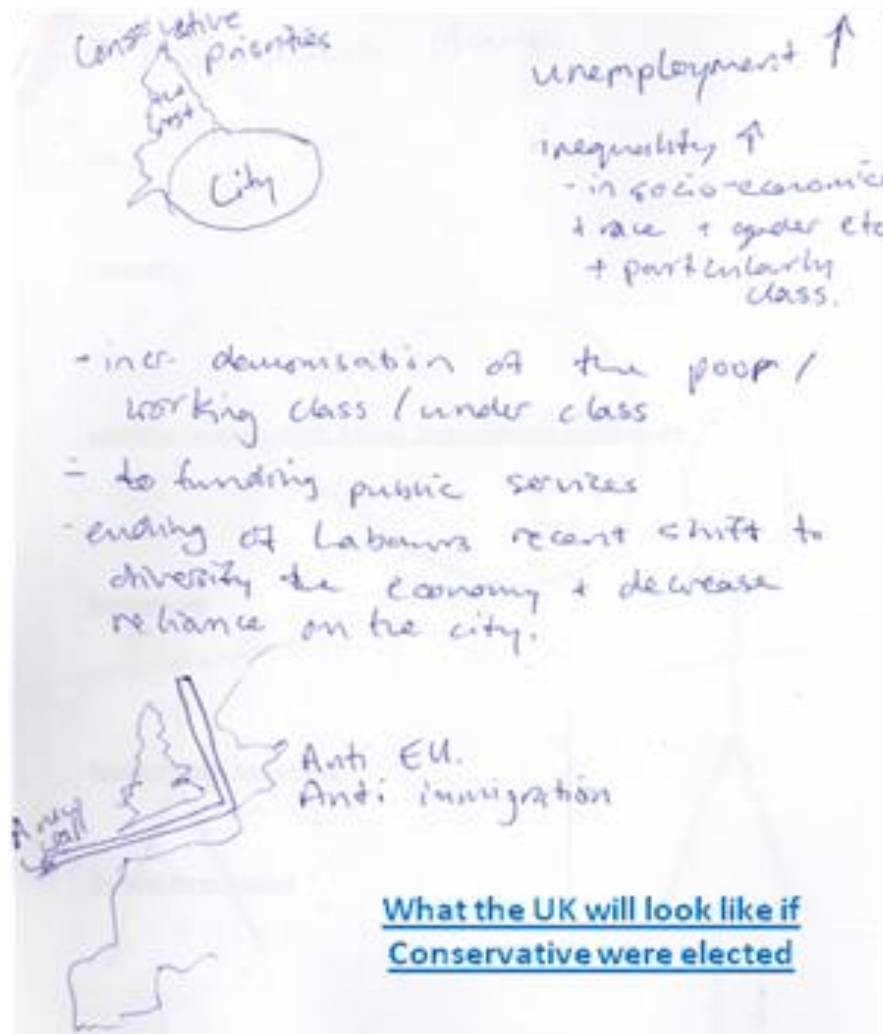 Conservative
Priorities
City
unemployment ↑
inequality ↑
- in socio-economics
+ race + gender etc
+ particularly
class.
- incr. demonisation of the poor /
working class / under class
- to funding public services
- ending of Labours recent shift to
diversify the economy + decrease
reliance on the city.
Anti EU.
Anti immigration
A new
wall
What the UK will look like if
Conservative were elected